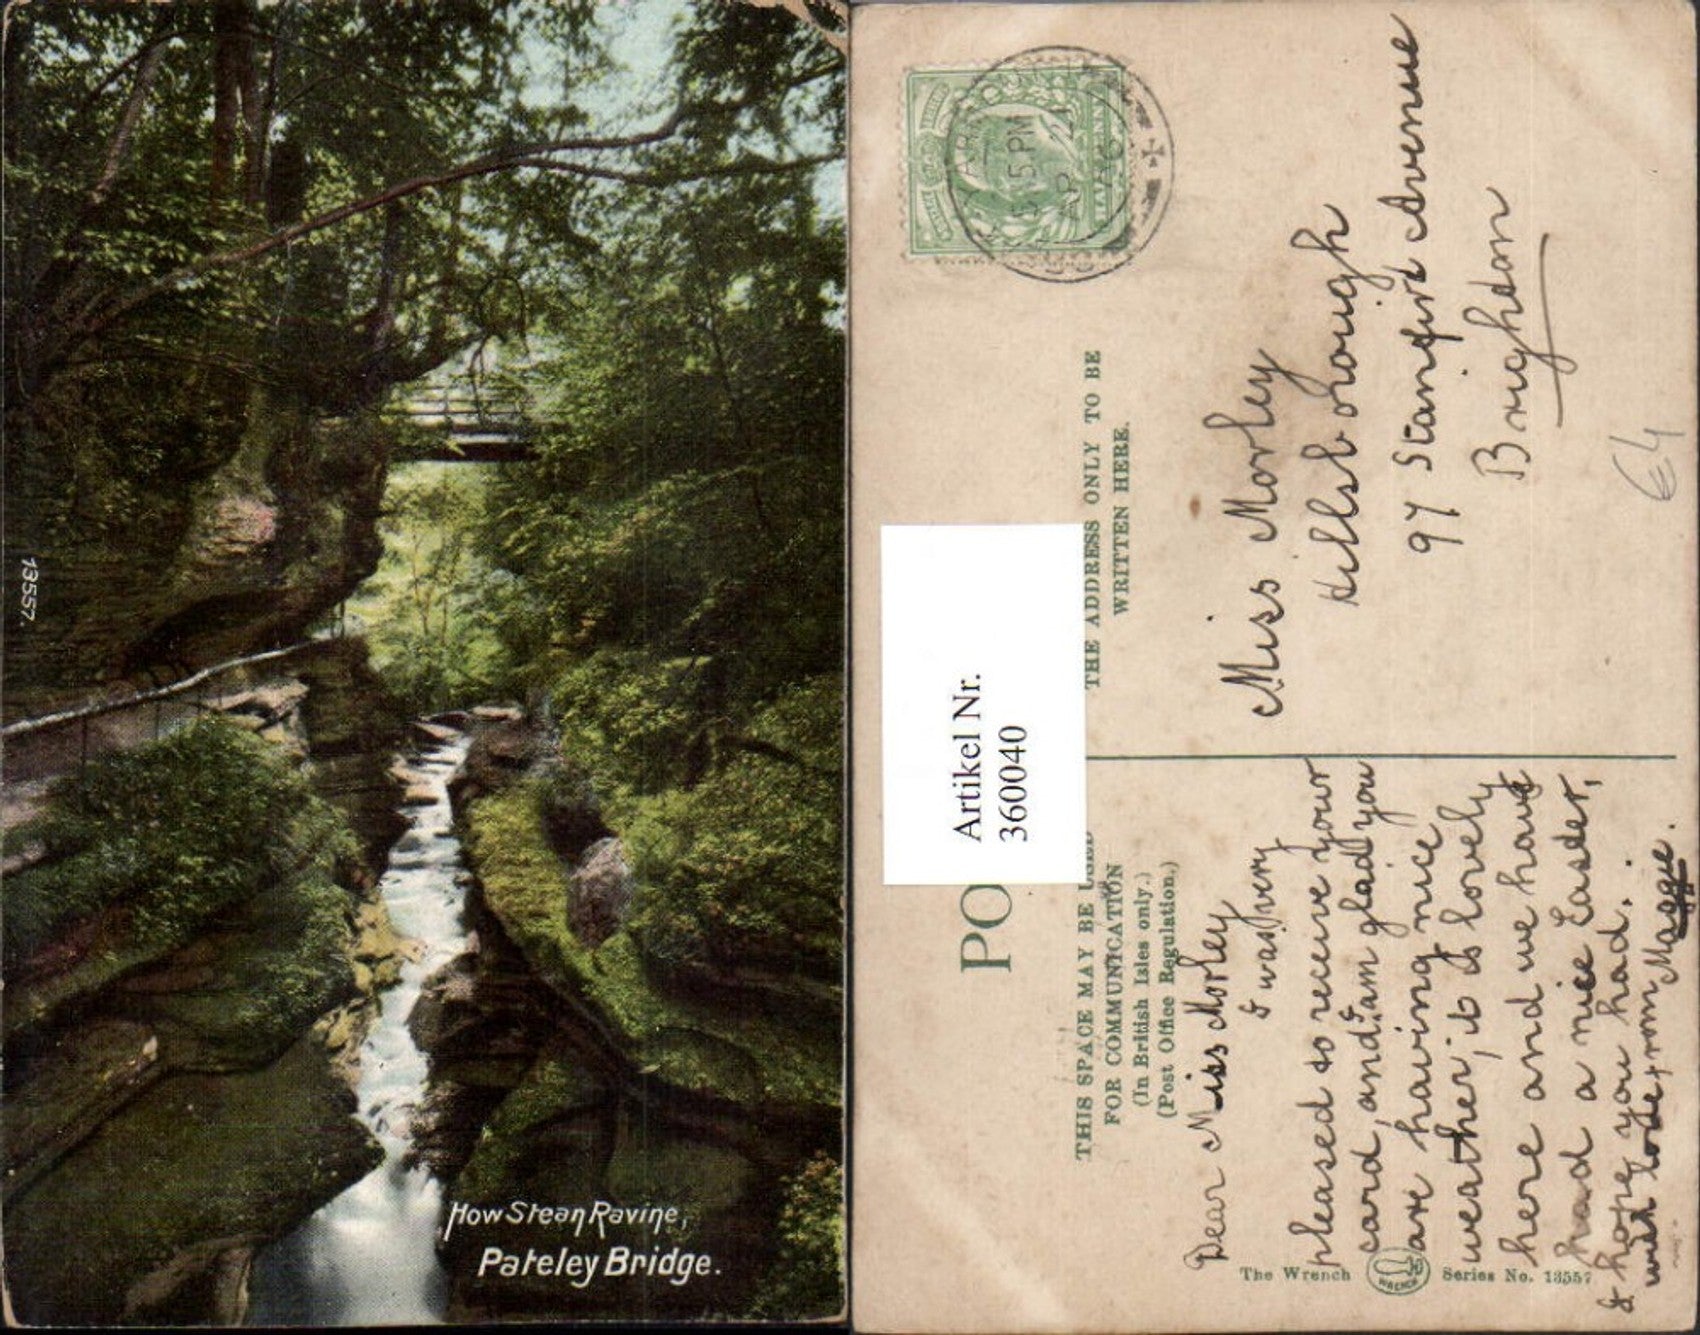 13557.
How Stean Ravine,
Pateley Bridge.
PO
Artikel Nr.
360040
THIS SPACE MAY BE USED
FOR COMMUNICATION
(In British Isles only.)
(Post Office Regulation.)
THE ADDRESS ONLY TO BE
WRITTEN HERE.
5 15 PM
AP 21
HALFPENNY
Dear Miss Morley
I was very
pleased to receive your
card, and I am glad you
are having nice
weather, it is lovely
here and we have
had a nice Easter,
I hope you had.
with love from Magge.
Miss Morley
Hillsborough
97 Stanford Avenue
Brighton
€4
The Wrench
WRENCH
Series No. 13557